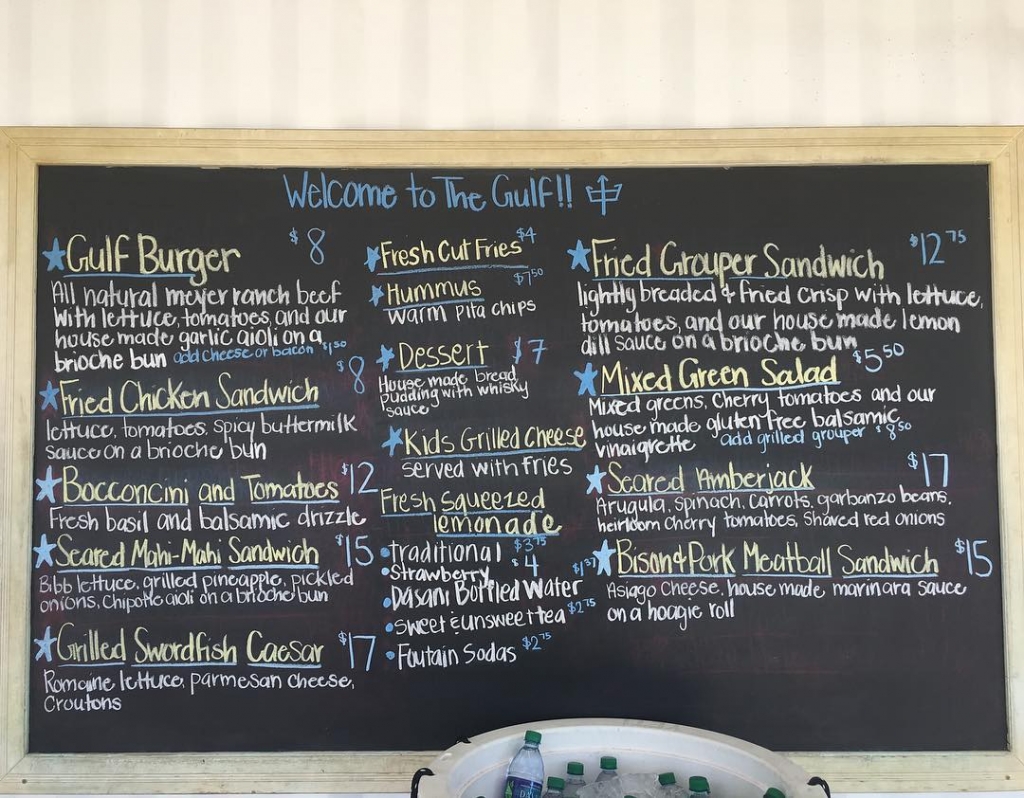 Welcome to The Gulf!!
Gulf Burger $8
All natural meyer ranch beef
with lettuce, tomatoes, and our
house made garlic aioli on a
brioche bun add cheese or bacon $1.50
Fried Chicken Sandwich $8
lettuce, tomatoes, spicy buttermilk
sauce on a brioche bun
Bocconcini and Tomatoes $12
Fresh basil and balsamic drizzle
Seared Mahi-Mahi Sandwich $15
Bibb lettuce, grilled pineapple, pickled
onions, Chipotle aioli on a brioche bun
Grilled Swordfish Caesar $17
Romaine lettuce, parmesan cheese,
Croutons
Fresh Cut Fries $4
Hummus $7.50
warm pita chips
Dessert $7
House made bread
pudding with whisky
sauce
Kids Grilled Cheese
served with fries
Fresh squeezed
lemonade
traditional $3.75
Strawberry $4
Dasani Bottled Water
sweet & unsweet tea $2.75
Foutain Sodas $2.75
Fried Grouper Sandwich $12.75
lightly breaded & fried crisp with lettuce,
tomatoes, and our house made lemon
dill sauce on a brioche bun
Mixed Green Salad $5.50
Mixed greens, Cherry tomatoes and our
house made gluten free balsamic
vinaigrette add grilled grouper $8.50
Seared Amberjack $17
Arugula, spinach, carrots, garbanzo beans,
heirloom cherry tomatoes, shaved red onions
Bison & Pork Meatball Sandwich $15
Asiago Cheese, house made marinara sauce
on a hoagie roll